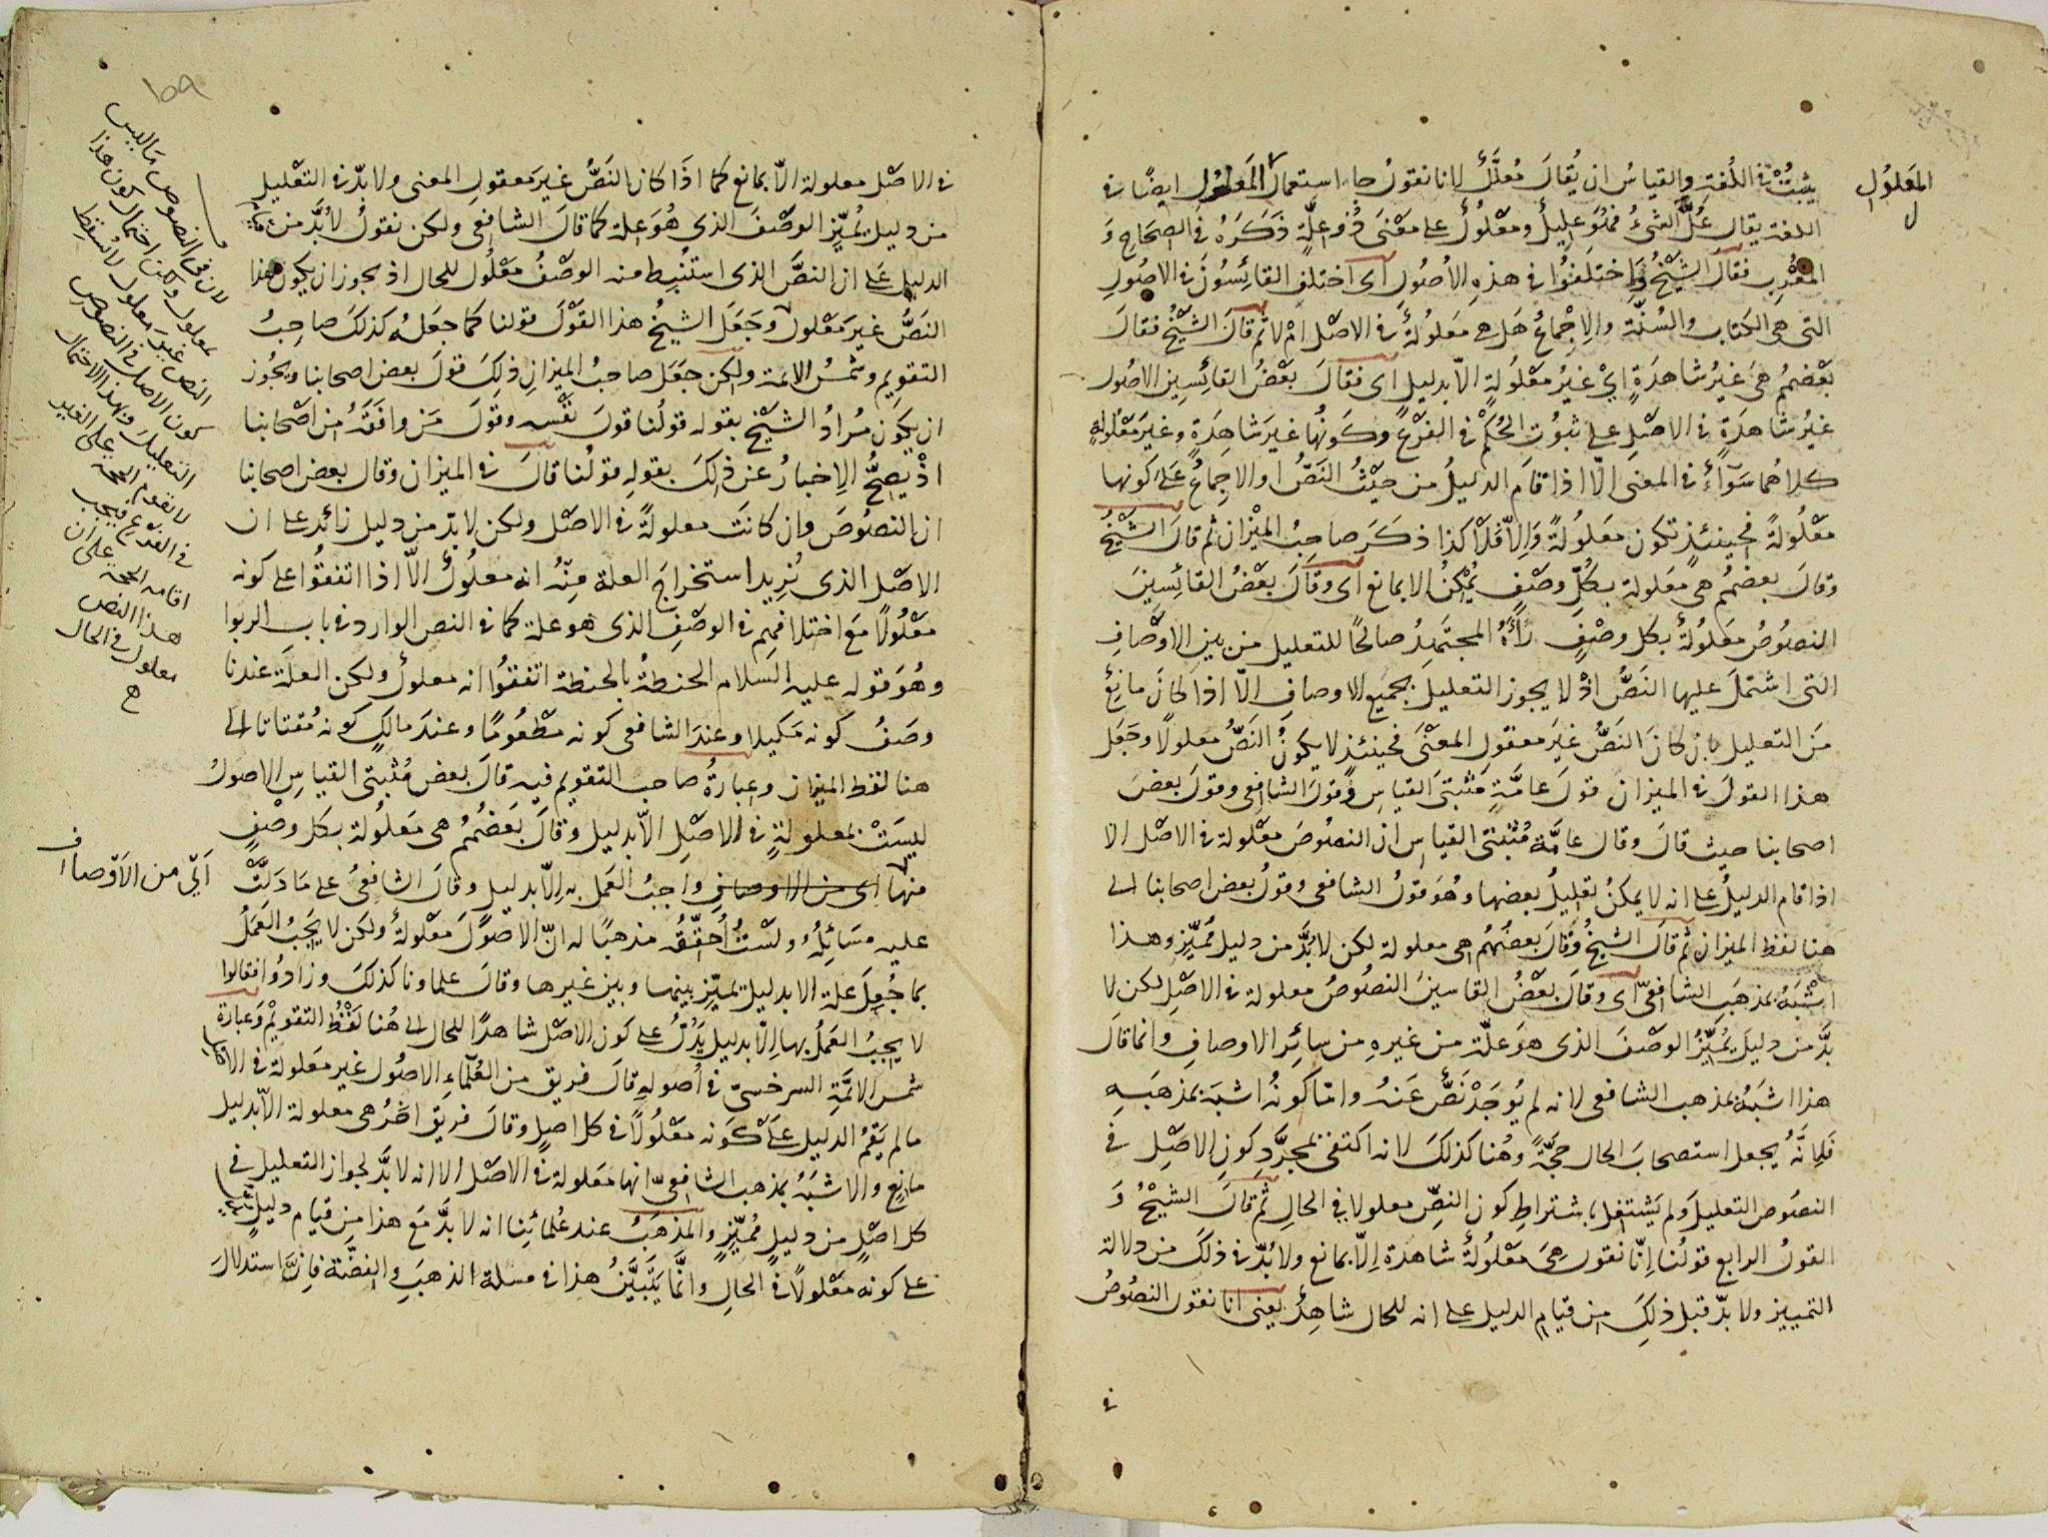 يثبت في اللغة والقياس ان يقال مُعلَّل لانا نقول جاء استعمال المعلول ايضًا في
المعلول
اللغة يقال عُلَّ الشئ فهو عليل ومعلول على معنى ذو علة ذكره في الصحاح و
المغرب فقال الشيخ واختلفوا في هذه الاصول اى اختلف القائسون في الاصول
التى هى الكتاب والسنة والاجماع هل هى معلولة في الاصل ام لا ثم قال الشيخ فقال
بعضهم هى غير شاهدة اي غير معلولة الا بدليل اى فقال بعض القائسين الاصول
غير شاهدة في الاصل على ثبوت الحكم في الفرع وكونها غير شاهدة وغير معلولة
كلاهما سوآء في المعنى الا اذا قام الدليل من حيث النص او الاجماع على كونها
معلولة فحينئذ تكون معلولة والا فلا كذا ذكر صاحب الميزان ثم قال الشيخ
وقال بعضهم هى معلولة بكل وصف يمكن الا بمانع اى وقال بعض القائسين
النصوص معلولة بكل وصف رأه المجتهد صالحًا للتعليل من بين الاوصاف
التى اشتمل عليها النص اذ لا يجوز التعليل بجميع الاوصاف الا اذا كان مانع
من التعليل بان كان النص غير معقول المعنى فحينئذ لا يكون النص معلولا وجعل
هذا القول في الميزان قول عامة مثبتى القياس وقول الشافعى وقول بعض
اصحابنا حيث قال وقال عامة مثبتى القياس ان النصوص معلولة في الاصل الا
اذا قام الدليل على انه لا يمكن تعليل بعضها وهو قول الشافعى وقول بعض اصحابنا الى
هنا لفظ الميزان ثم قال الشيخ وقال بعضهم هى معلولة لكن لا بد من دليل مميز وهذا
اشبه بمذهب الشافعى اى وقال بعض القاسين النصوص معلولة في الاصل لكن لا
بد من دليل يميز الوصف الذى هو علة من غيره من سائر الاوصاف وانما قال
هذا اشبه بمذهب الشافعى لانه لم يوجد نص عنه وامّا كونه اشبه بمذهبه
فلانه يجعل استصحاب الحال حجة وهنا كذلك لانه اكتفى بمجرد كون الاصل في
النصوص التعليل ولم يشتغل باشتراط كون النص معلولا في الحال ثم قال الشيخ و
القول الرابع قولنا انا نقول هى معلولة شاهدة الا بمانع ولا بد في ذلك من دلالة
التمييز ولا بد قبل ذلك من قيام الدليل على انه للحال شاهد يعنى انا نقول النصوص
في
١٥٩
في الاصل معلولة الا بمانع كما اذا كان النص غير معقول المعنى ولا بد في التعليل
من دليل يميز الوصف الذى هو علة كما قال الشافعى ولكن نقول لا بد من قيام
الدليل على ان النص الذى استنبط منه الوصف معلول للحال اذ يجوز ان يكون هذا
النص غير معلول وجعل الشيخ هذا القول قولنا كما جعله كذلك صاحب
التقويم وشمس الائمة ولكن جعل صاحب الميزان ذلك قول بعض اصحابنا ويجوز
ان يكون مراد الشيخ بقوله قولنا قول نفسه وقول من وافقه من اصحابنا
اذ يصح الاخبار عن ذلك بقوله قولنا قال في الميزان وقال بعض اصحابنا
ان النصوص وان كانت معلولة في الاصل ولكن لا بد من دليل زائد على ان
الاصل الذى نريد استخراج العلة منه انه معلول الا اذا اتفقوا على كونه
معلولا مع اختلافهم في الوصف الذى هو علة كما في النص الوارد في باب الربوا
وهو قوله عليه السلام الحنطة بالحنطة اتفقوا انه معلول ولكن العلة عندنا
وصف كونه مكيلا وعند الشافعى كونه مطعومًا وعند مالك كونه مقتاتا الى
هنا لفظ الميزان وعبارة صاحب التقويم فيه قال بعض مثبتى القياس الاصول
ليست بمعلولة في الاصل الا بدليل وقال بعضهم هى معلولة بكل وصف
منها اى من الاوصاف واجب العمل به الا بدليل وقال الشافعى على ما دلت
اَىّ من الاوصاف
عليه مسائله ولست احقق مذهبًا له ان الاصول معلولة ولكن لا يجب العمل
بما جعل علة الا بدليل يميز بينها وبين غيرها وقال علماونا كذلك وزادوا فقالوا
لا يجب العمل بها الا بدليل يدل على كون الاصل شاهدًا للحال الى هنا لفظ التقويم وعبارة
شمس الائمة السرخسى في اصوله قال فريق من العلماء الاصول غير معلولة في الاصل
ما لم يقم الدليل على كونه معلولا في كل اصل وقال فريق اخر هى معلولة الا بدليل
مانع والاشبه بمذهب الشافعى انها معلولة في الاصل الا انه لا بد لجواز التعليل في
كل اصل من دليل مميز والمذهب عند علمائنا انه لا بد مع هذا من قيام دليل
على كونه معلولا في الحال وانما يتبين هذا في مسلة الذهب والفضة فان استدلال
لان في النصوص ما ليس
بمعلول ولكن احتمال كون هذا
النص غير معلول لا يسقط
كون الاصل في النصوص
التعليل وبهذا الاحتمال
لا تقوم الحجة على الغير
فيجب
اقامة الحجة على ان
هذا النص
معلول في الحال
ح